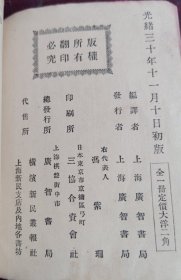 光緒三十年十一月十日初版
全一冊定價大洋二角
版權
所有
翻印
必究
編譯者 上海廣智書局
發行者 上海廣智書局
右代表人 馮紫珊
日本東京市京橋區弓町
印刷所 三協合資會社
上海棋盤街中市
總發行所 廣智書局
橫濱新民叢報社
代售所
上海新民支店及內地各書坊